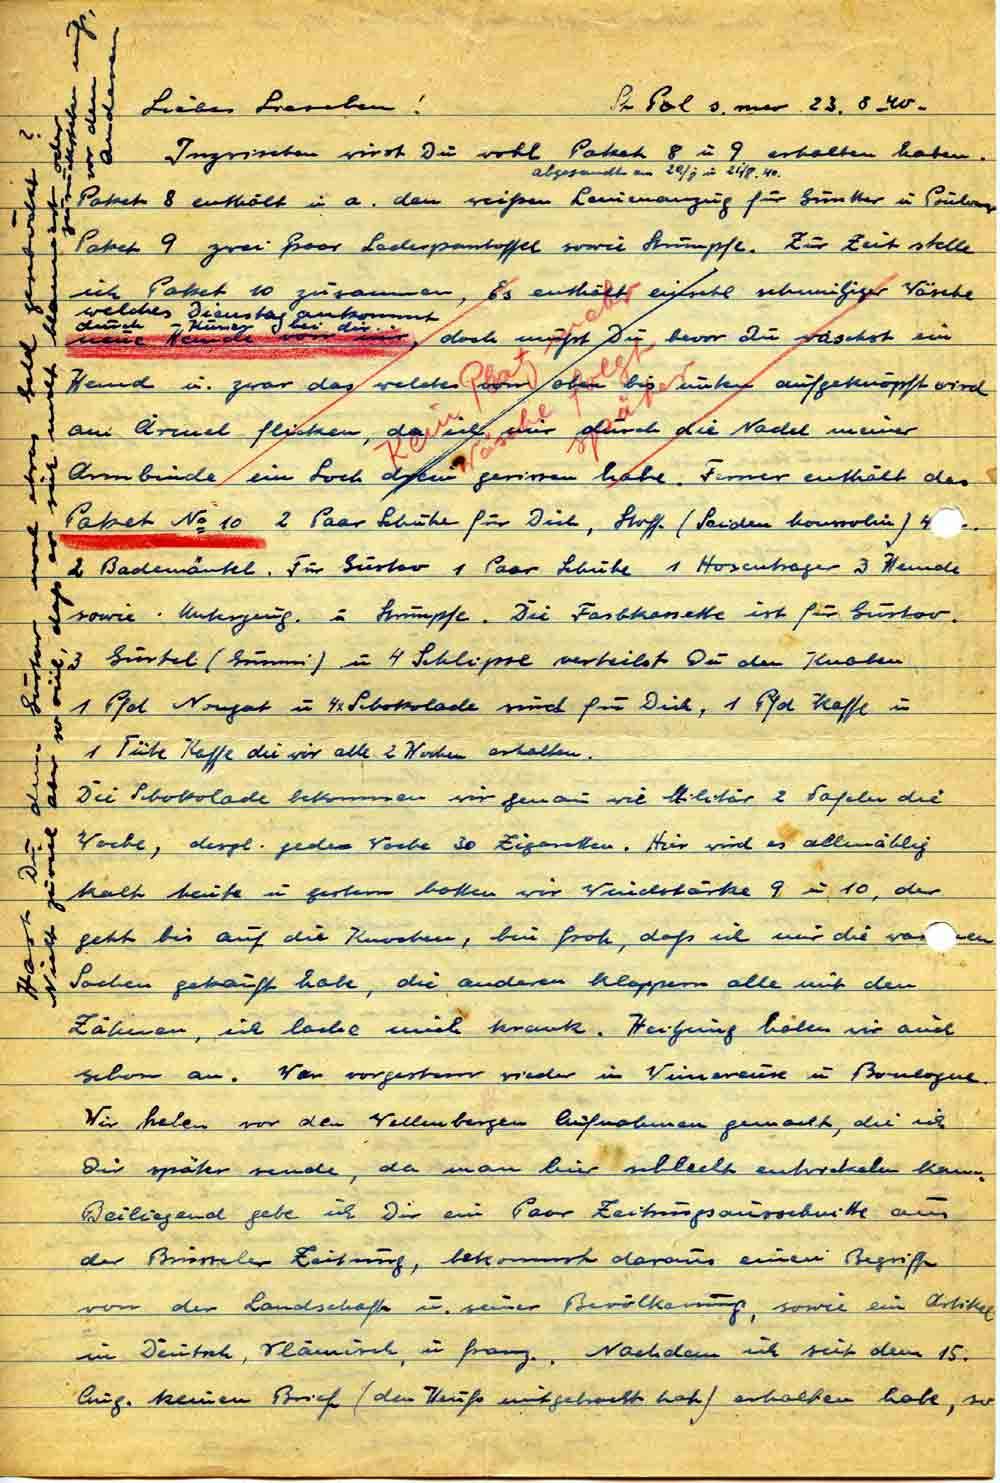 Liebes Lieschen! St Pol s. mer 23. 8 40.
Inzwischen wirst Du wohl Paket 8 u 9 erhalten haben.
abgesandt am 20/8 u 21/8. 40.
Paket 8 enthält u a. den weißen Leinenanzug für Günther u
Paket 9 zwei Paar Lederpantoffel sowie Strümpfe. Zur Zeit stelle
ich Paket 10 zusammen, Es enthält einschl schmutziger Wäsche
welches Dienstag ankommt
durch bei dir
neue Hemde von mir, doch mußt Du bevor Du wäschst ein
Hemd u. zwar das welches vorn oben bis unten aufgeknöpft wird
am Ärmel flicken, da ich mir durch die Nadel meiner
Armbinde ein Loch drein gerissen habe. Ferner enthält das
Kein Platz mehr
Wäsche folgt
später
Paket No 10 2 Paar Schuhe für Dich, Stoff (Seiden) 4
2 Bademäntel. Für Gustav 1 Paar Schuhe 1 Hosenträger 3 Hemde
sowie Unterzeug. u Strümpfe. Die Farbkassette ist für Gustav.
3 Gürtel (Gummi) u 4 Schlipse verteilst Du den Knaben
1 Pfd Nougat u 4x Schokolade sind für Dich, 1 Pfd Kaffe u
1 Tüte Kaffe die wir alle 2 Wochen erhalten.
Die Schokolade bekommen wir genau wie Militär 2 Tafeln die
Woche, desgl. jede Woche 30 Zigaretten. Hier wird es allmählig
kalt heute u gestern hatten wir Windstärke 9 u 10, der
geht bis auf die Knochen, bin froh, daß ich mir die warmen
Sachen gekauft habe, die anderen klappern alle mit den
Zähnen, ich lache mich krank. Heizung haben wir auch
schon an. War vorgestern wieder in Vimereux u Boulogne.
Wir haben vor den Wellenbergen Aufnahmen gemacht, die ich
Dir später sende, da man hier schlecht entwickeln kann.
Beiliegend gebe ich Dir ein Paar Zeitungsausschnitte aus
der Brüsseler Zeitung, bekommst daraus einen Begriff
von der Landschaft u. seiner Bevölkerung, sowie ein Artikel
in Deutsch, Vlämisch, u franz.. Nachdem ich seit dem 15.
Aug. keinen Brief (den mitgebracht hat) erhalten habe, so
Hast Du dem Gustav mal etwas Geld geschickt?
Nicht zuviel aber so viel, daß er sich nicht blamiert oder
zurückstehen muß,
vor den
Anderen